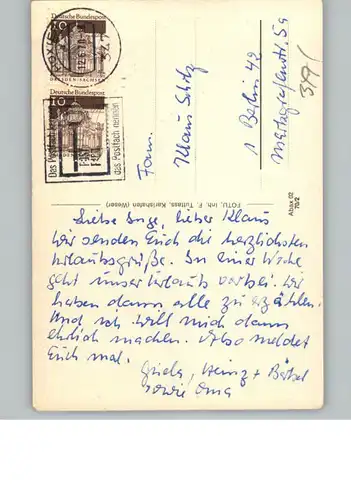 Deutsche Bundespost
10
DRESDEN-SACHSEN
Deutsche Bundespost
10
das Postfach nennen
Fam.
Klaus Schitz
1 Berlin 42
5a
FOTU, Inh. F. Tuttass, Karlshafen (Weser)
Abax 02
70/2
Liebe Inge, lieber Klaus
Wir senden Euch die herzlichsten
Urlaubsgrüße. In einer Woche
geht unser Urlaub vorbei. Wir
haben dann alle zu erzählen.
Und ich will mich dann
ehrlich machen. Also meldet
Euch mal.
Gisela, Heinz + Bärbel
sowie Oma